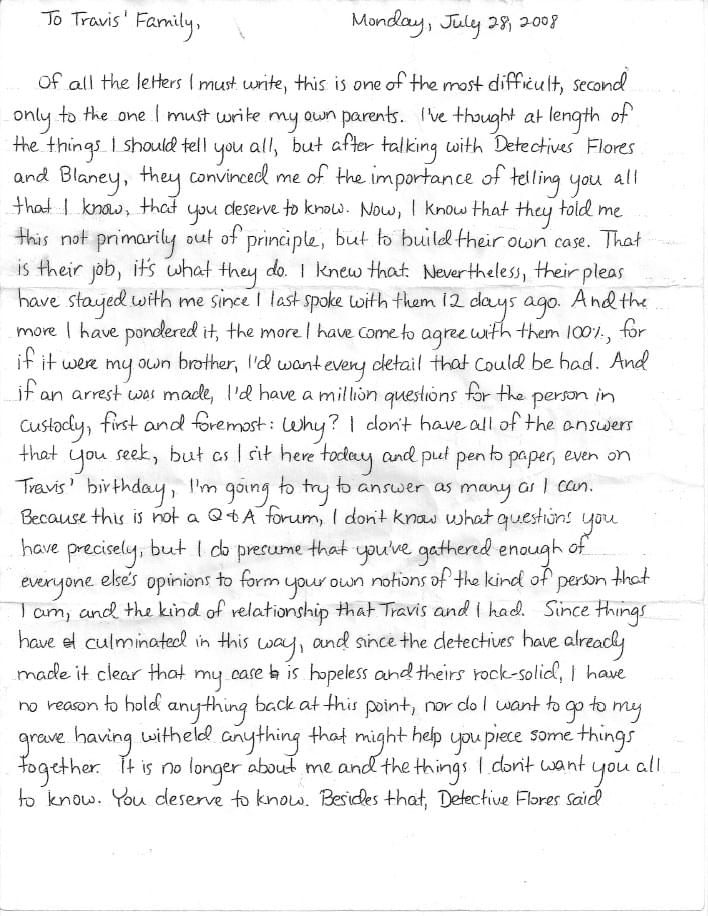 To Travis' Family, Monday, July 28, 2008
Of all the letters I must write, this is one of the most difficult, second
only to the one I must write my own parents. I've thought at length of
the things I should tell you all, but after talking with Detectives Flores
and Blaney, they convinced me of the importance of telling you all
that I know, that you deserve to know. Now, I know that they told me
this not primarily out of principle, but to build their own case. That
is their job, it's what they do. I knew that. Nevertheless, their pleas
have stayed with me since I last spoke with them 12 days ago. And the
more I have pondered it, the more I have come to agree with them 100%, for
if it were my own brother, I'd want every detail that could be had. And
if an arrest was made, I'd have a million questions for the person in
custody, first and foremost: Why? I don't have all of the answers
that you seek, but as I sit here today and put pen to paper, even on
Travis' birthday, I'm going to try to answer as many as I can.
Because this is not a Q & A forum, I don't know what questions you
have precisely, but I do presume that you've gathered enough of
everyone else's opinions to form your own notions of the kind of person that
I am, and the kind of relationship that Travis and I had. Since things
have culminated in this way, and since the detectives have already
made it clear that my case is hopeless and theirs rock-solid, I have
no reason to hold anything back at this point, nor do I want to go to my
grave having witheld anything that might help you piece some things
together. It is no longer about me and the things I don't want you all
to know. You deserve to know. Besides that, Detective Flores said